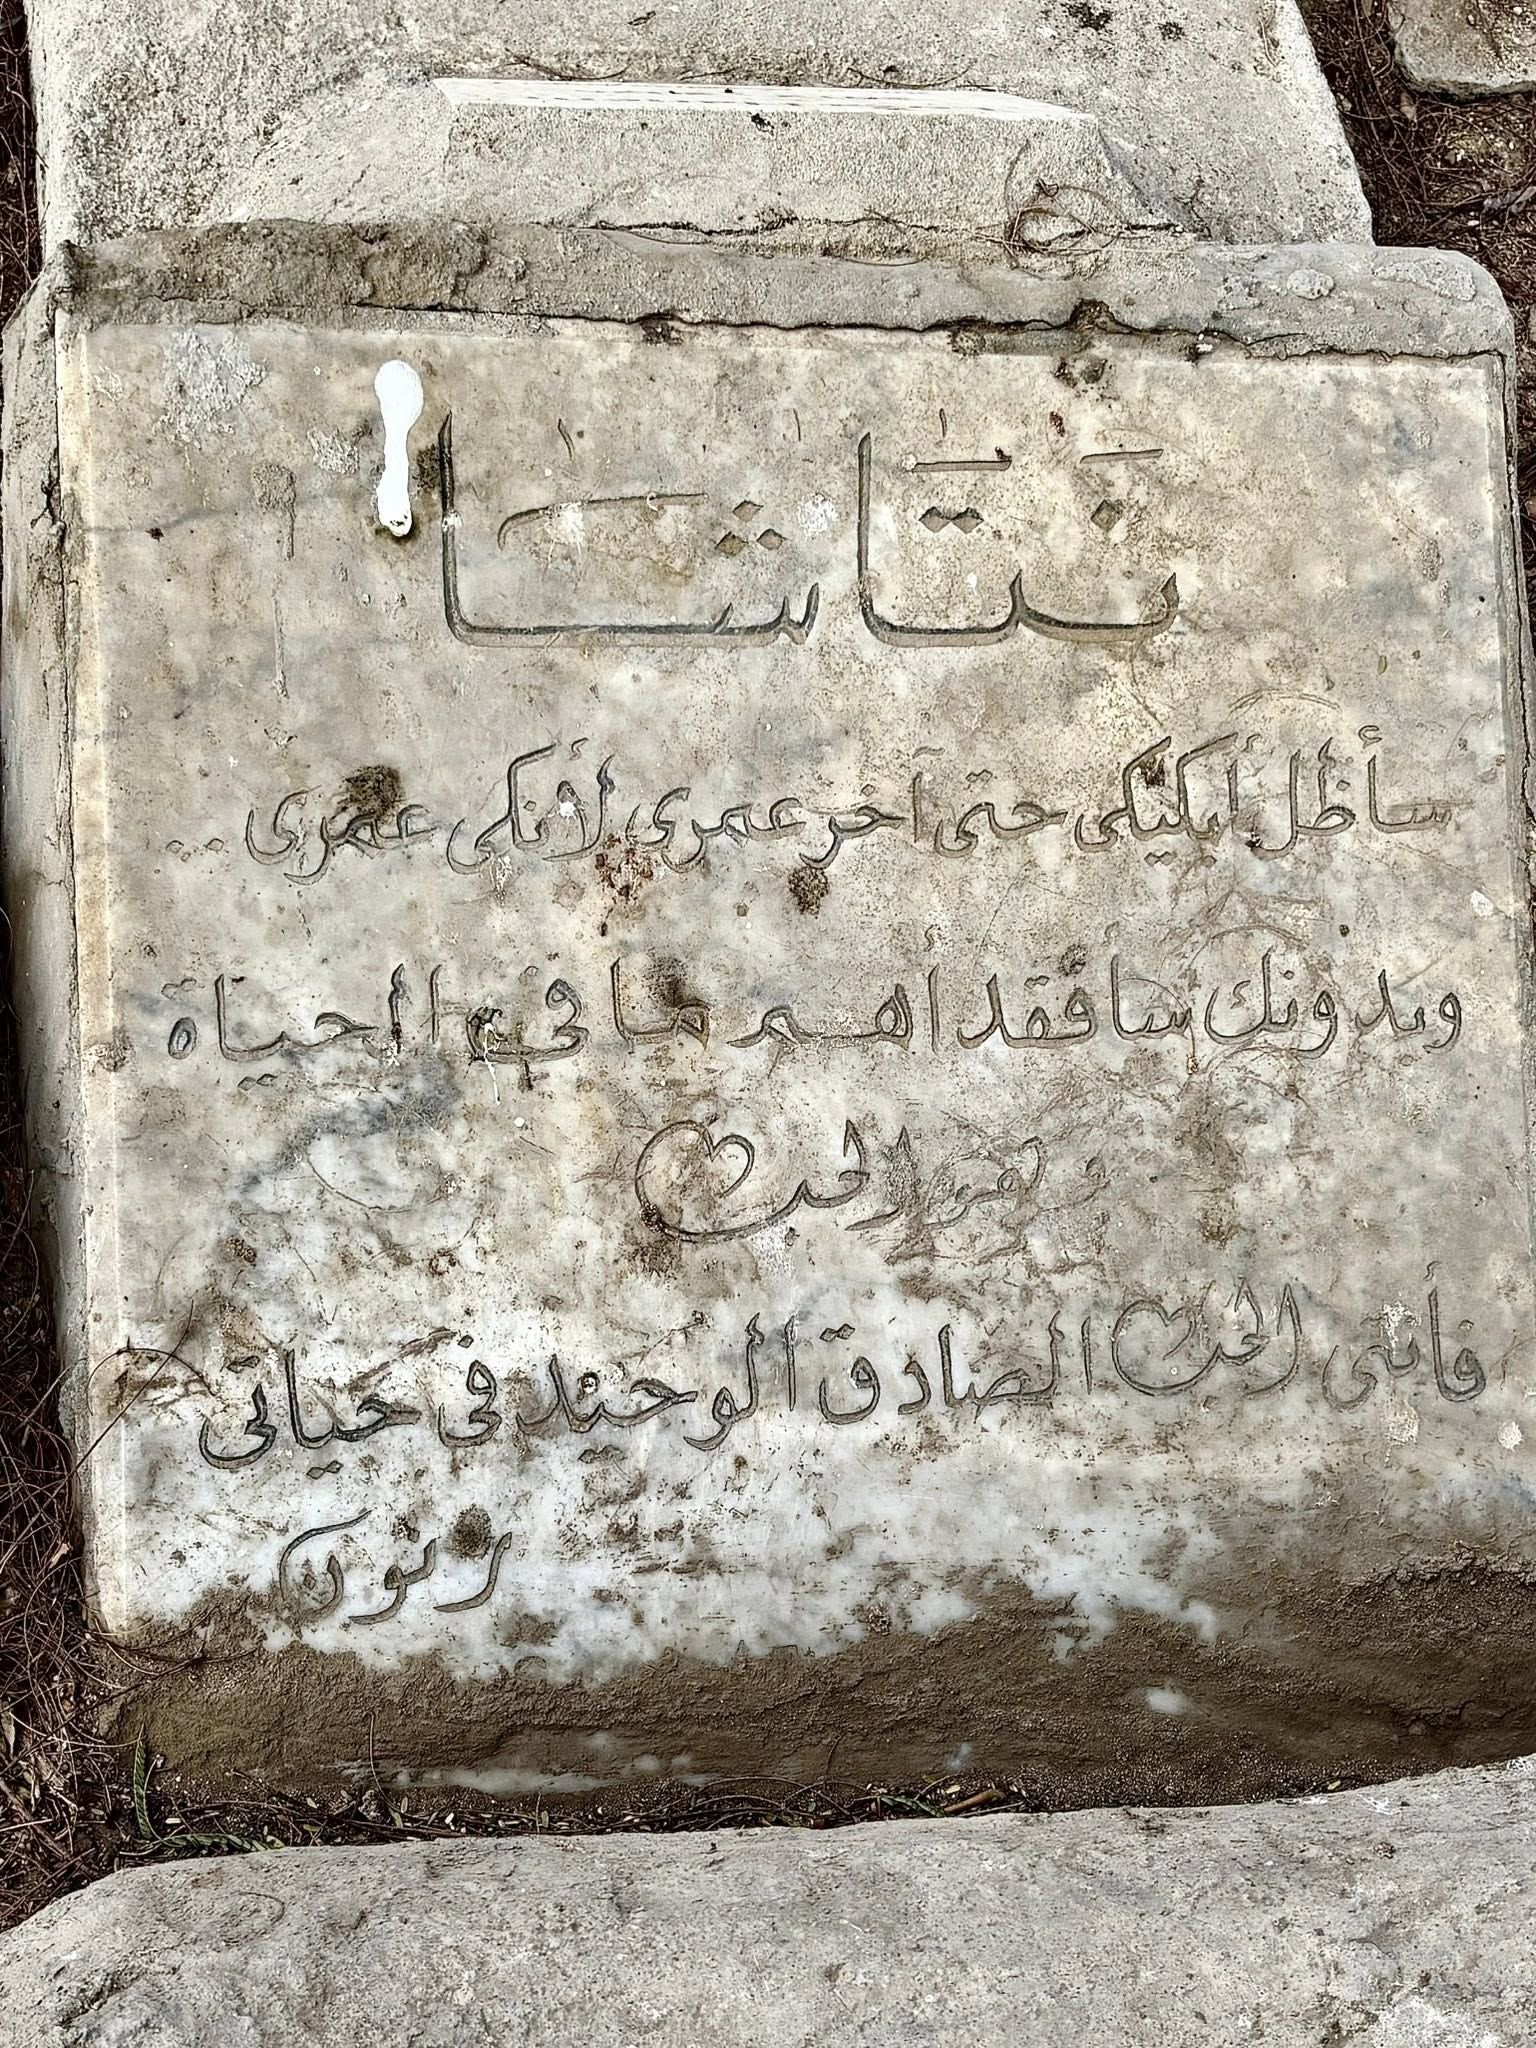 نَتَاشَا
سأظل أبكيكى حتى آخر عمرى لأنكى عمرى ..
وبدونك سأفقد أهم ما في الحياة
وهو الحب
فأنتى الحب الصادق الوحيد فى حياتى